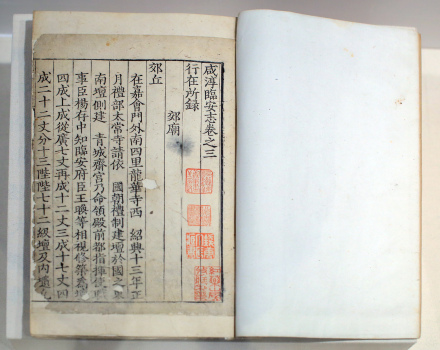 咸淳臨安志卷之三
行在所録
郊廟
郊丘
在嘉會門外南四里龍華寺西 紹興十三年正
月禮部太常寺請依 國朝禮制建壇於國之東
南壇側建 青城齋官乃命領殿前都指揮使職
事臣楊存中知臨安府臣王㬇等相視修築爲壇
四成上成從廣七丈再成十二丈三成十七丈四
成二十二丈分十三陛陛七十二級壇及内壝凡